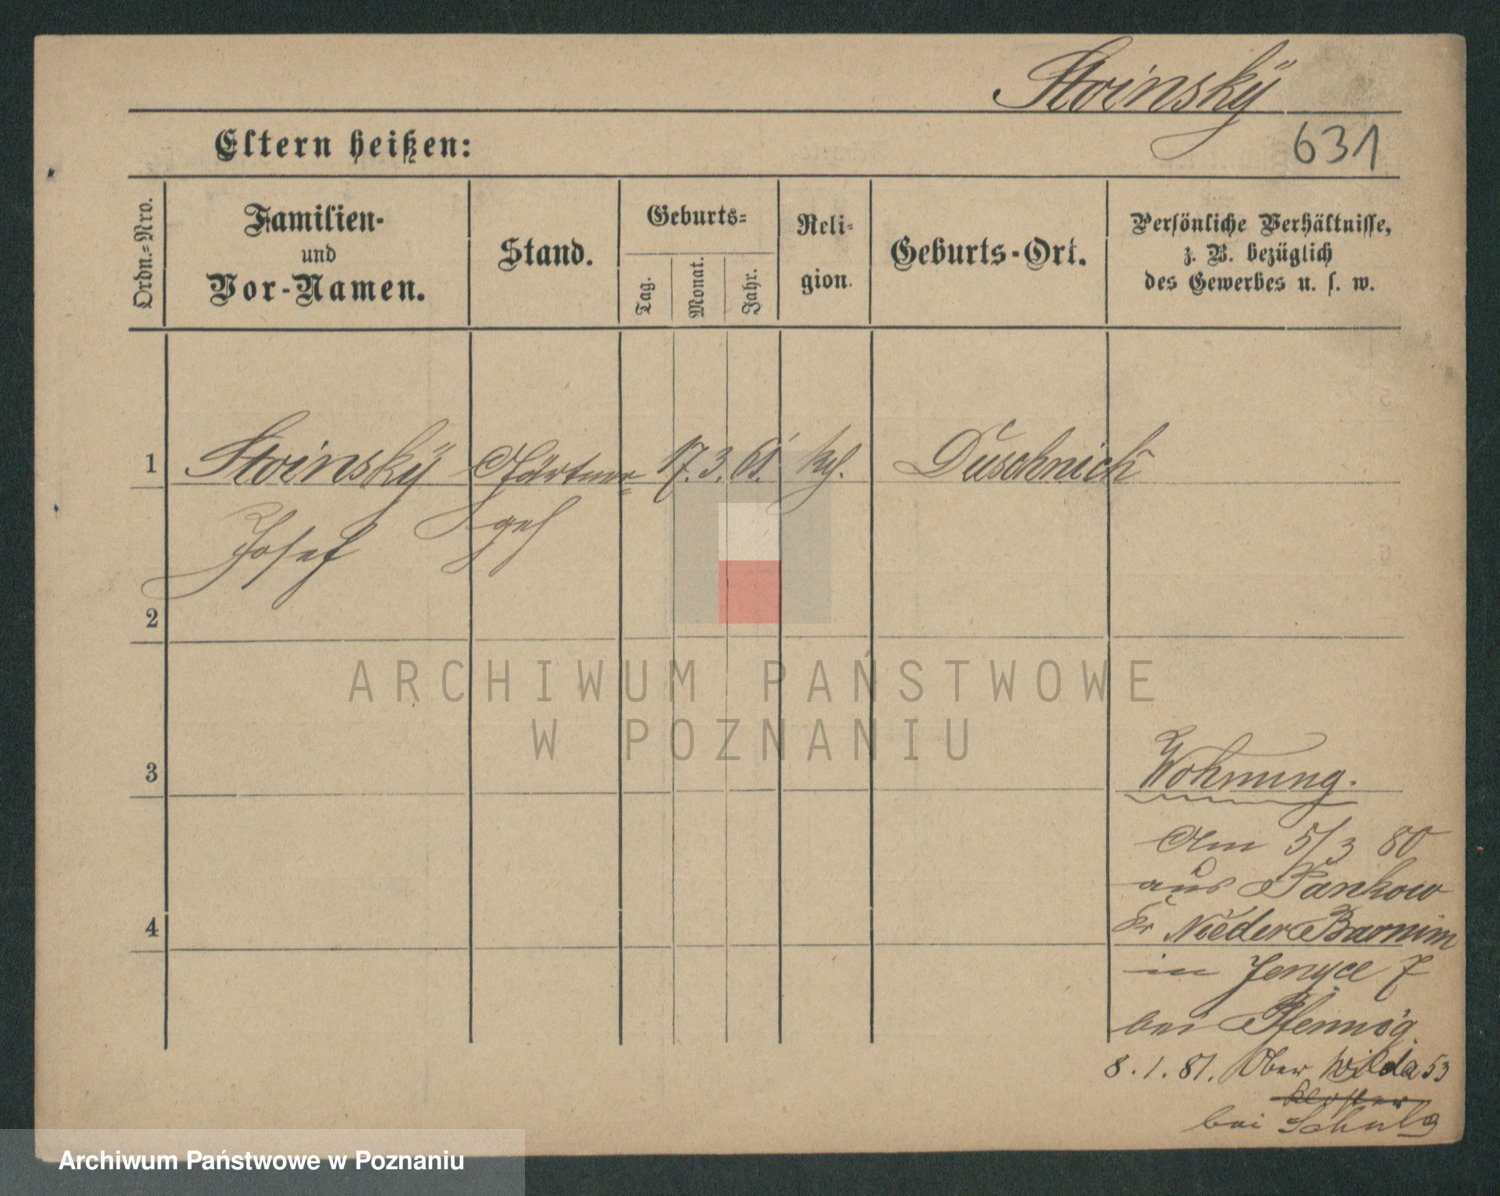 Stoinsky
Eltern heißen:
631
Ordn.=Nro.
Familien-
und
Vor-Namen.
Stand.
Geburts=
Tag.
Monat.
Jahr.
Reli-
gion.
Geburts-Ort.
Persönliche Verhältnisse,
z. B. bezüglich
des Gewerbes u. s. w.
1 Stoinsky Gärtner 17. 3. 61. kth. Duschnick
Josef geh
2
ARCHIWUM PAŃSTWOWE
W POZNANIU
3 Wohnung.
Am 5/3 80
aus Pankow
4 Kr Nieder Barnim
in Jerzyce 7
bei
8. 1. 81. Ober Wilda 53
bei Schulz
Archiwum Państwowe w Poznaniu